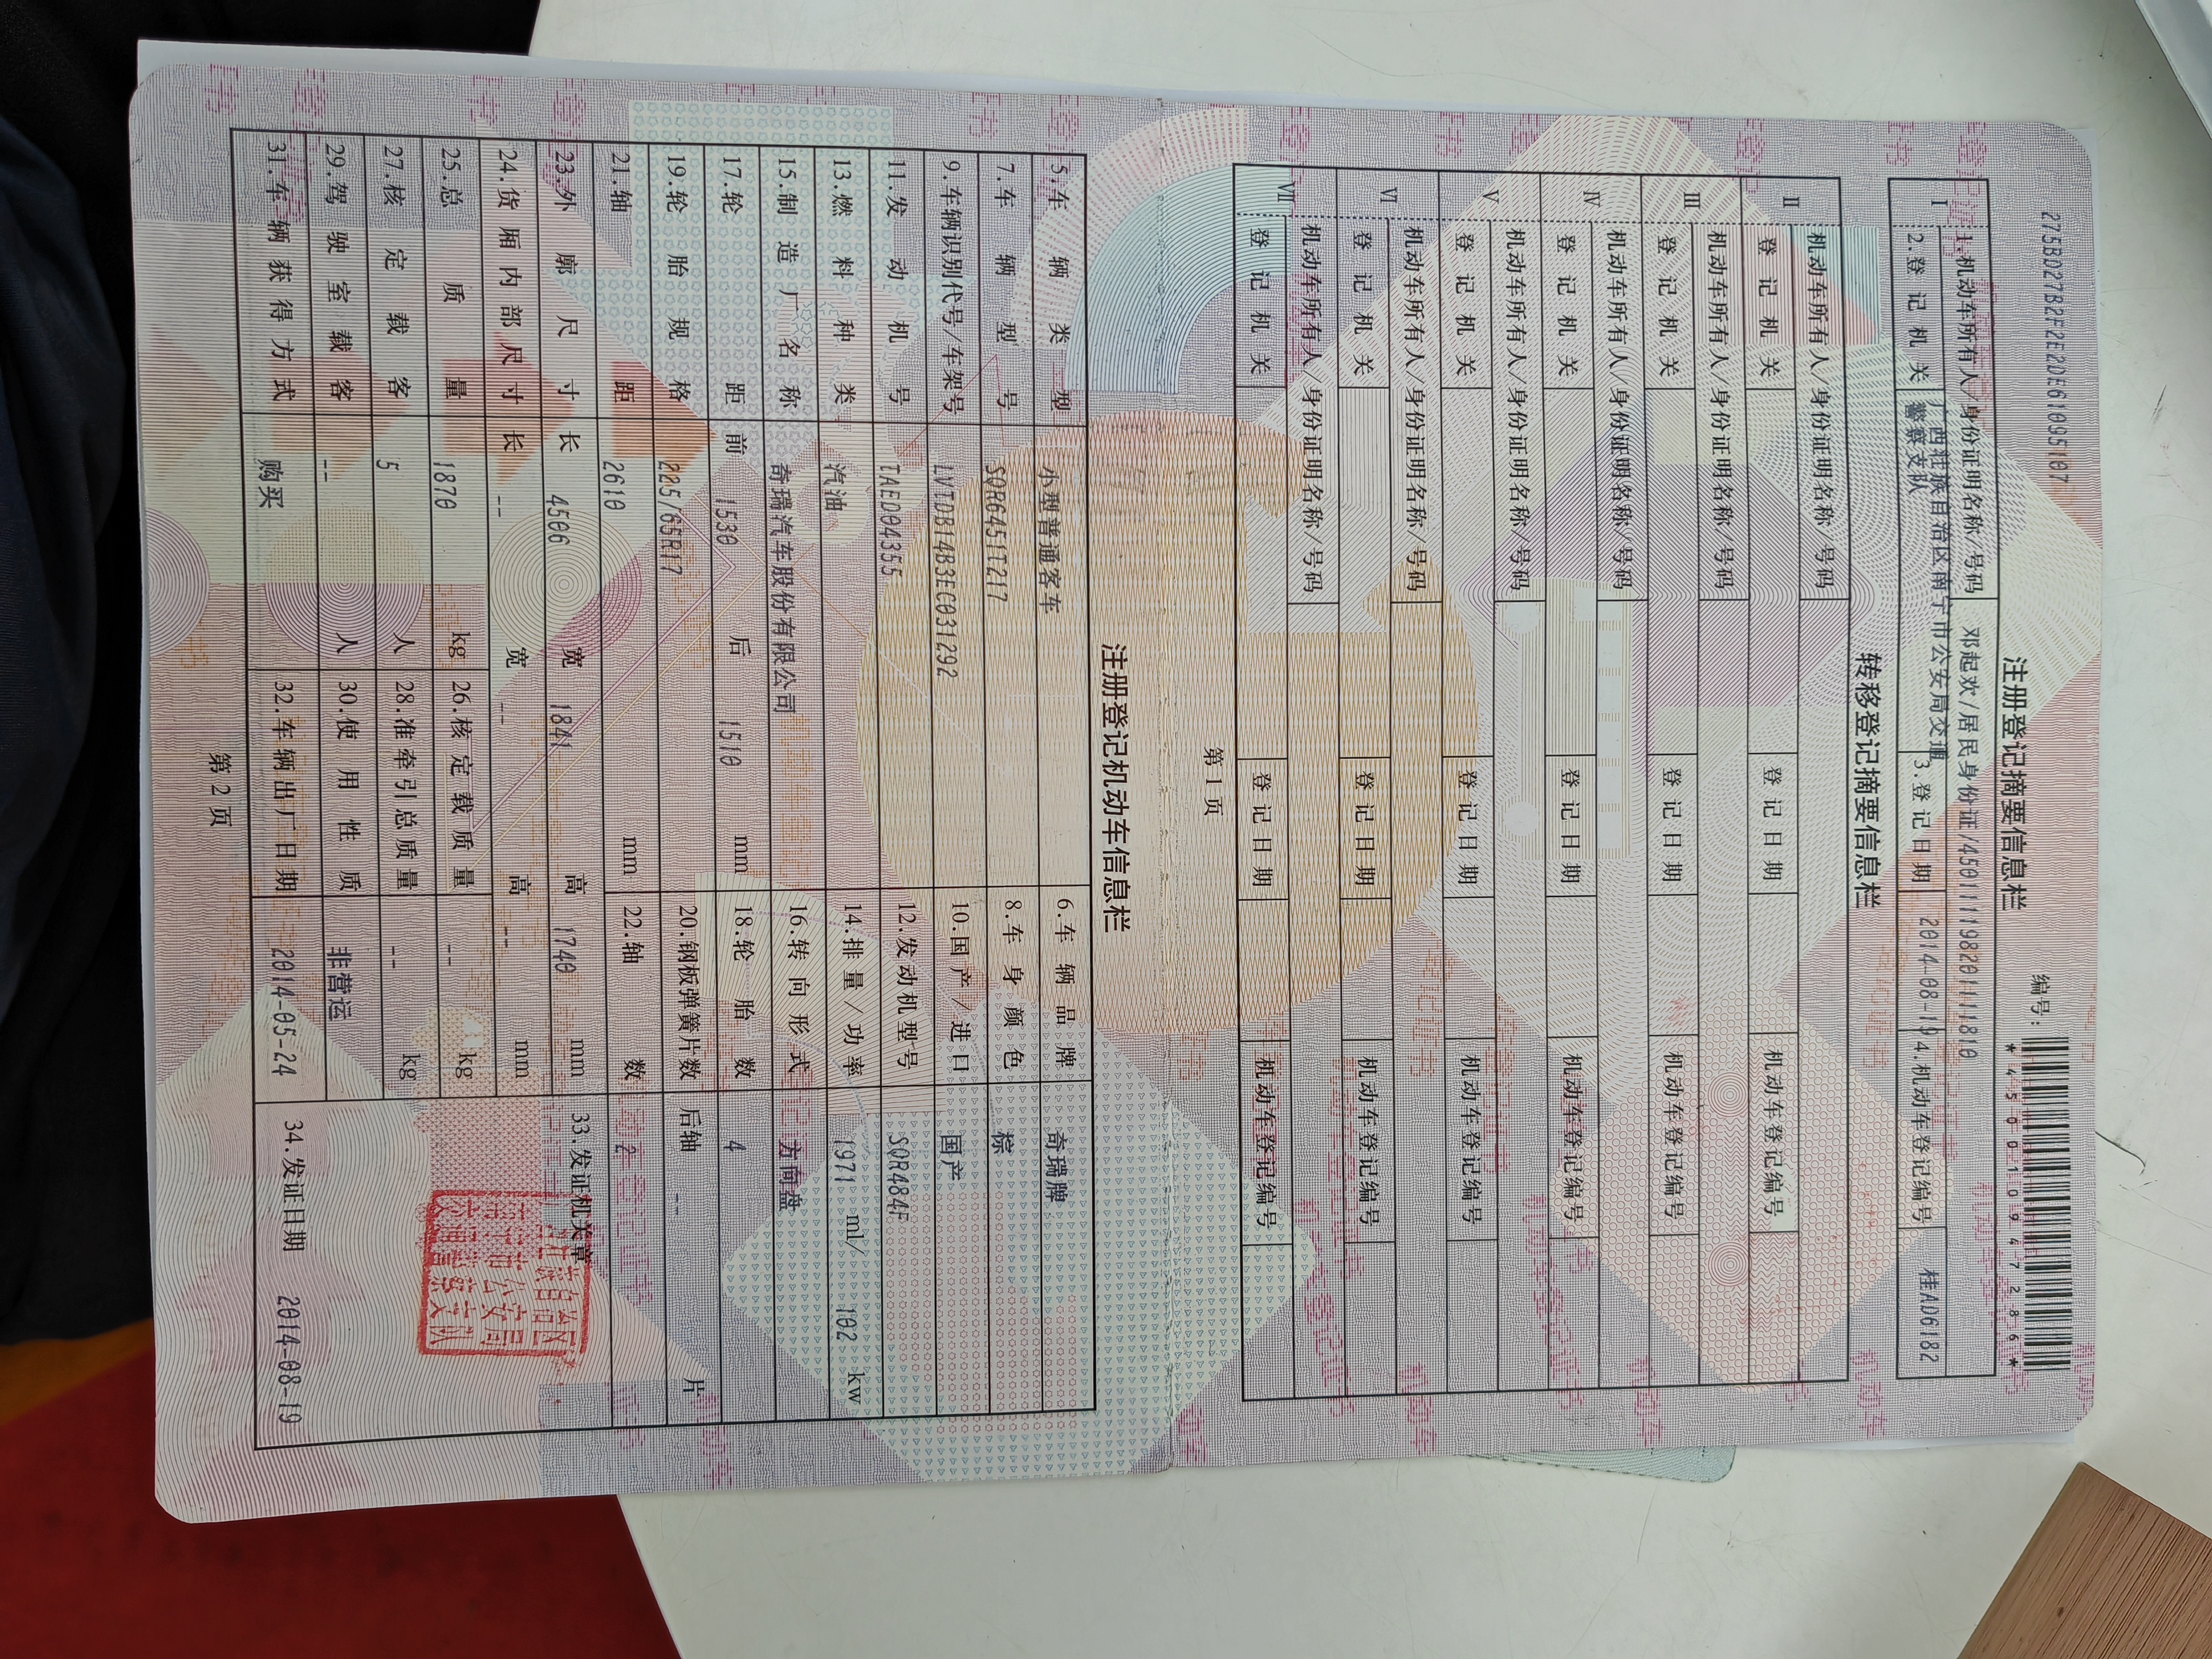 275BD27B2F2E2DE61095107
编号:
*450010947286*
注册登记摘要信息栏
Ⅰ 1.机动车所有人/身份证明名称/号码 邓起欢/居民身份证/450111198201111810
2.登记机关 广西壮族自治区南宁市公安局交通警察支队 3.登记日期 2014-08-19 4.机动车登记编号 桂AD6182
转移登记摘要信息栏
Ⅱ 机动车所有人/身份证明名称/号码
登记机关 登记日期 机动车登记编号
Ⅲ 机动车所有人/身份证明名称/号码
登记机关 登记日期 机动车登记编号
Ⅳ 机动车所有人/身份证明名称/号码
登记机关 登记日期 机动车登记编号
Ⅴ 机动车所有人/身份证明名称/号码
登记机关 登记日期 机动车登记编号
Ⅵ 机动车所有人/身份证明名称/号码
登记机关 登记日期 机动车登记编号
Ⅶ 机动车所有人/身份证明名称/号码
登记机关 登记日期 机动车登记编号
第1页
注册登记机动车信息栏
5.车辆类型 小型普通客车 6.车辆品牌 奇瑞牌
7.车辆型号 SQR6451T217 8.车身颜色 棕
9.车辆识别代号/车架号 LVTDB14B3EC031292 10.国产/进口 国产
11.发动机号 TAED04355 12.发动机型号 SQR484F
13.燃料种类 汽油 14.排量/功率 1971 ml/ 102 kw
15.制造厂名称 奇瑞汽车股份有限公司 16.转向形式 方向盘
17.轮距 前 1530 后 1510 mm 18.轮胎数 4
19.轮胎规格 225/65R17 20.钢板弹簧片数 后轴 -- 片
21.轴距 2610 mm 22.轴数 2
23.外廓尺寸 长 4506 宽 1841 高 1740 mm 33.发证机关章
24.货厢内部尺寸 长 -- 宽 -- 高 -- mm
25.总质量 1870 kg 26.核定载质量 -- kg
27.核定载客 5 人 28.准牵引总质量 -- kg
29.驾驶室载客 -- 人 30.使用性质 非营运
31.车辆获得方式 购买 32.车辆出厂日期 2014-05-24 34.发证日期 2014-08-19
第2页